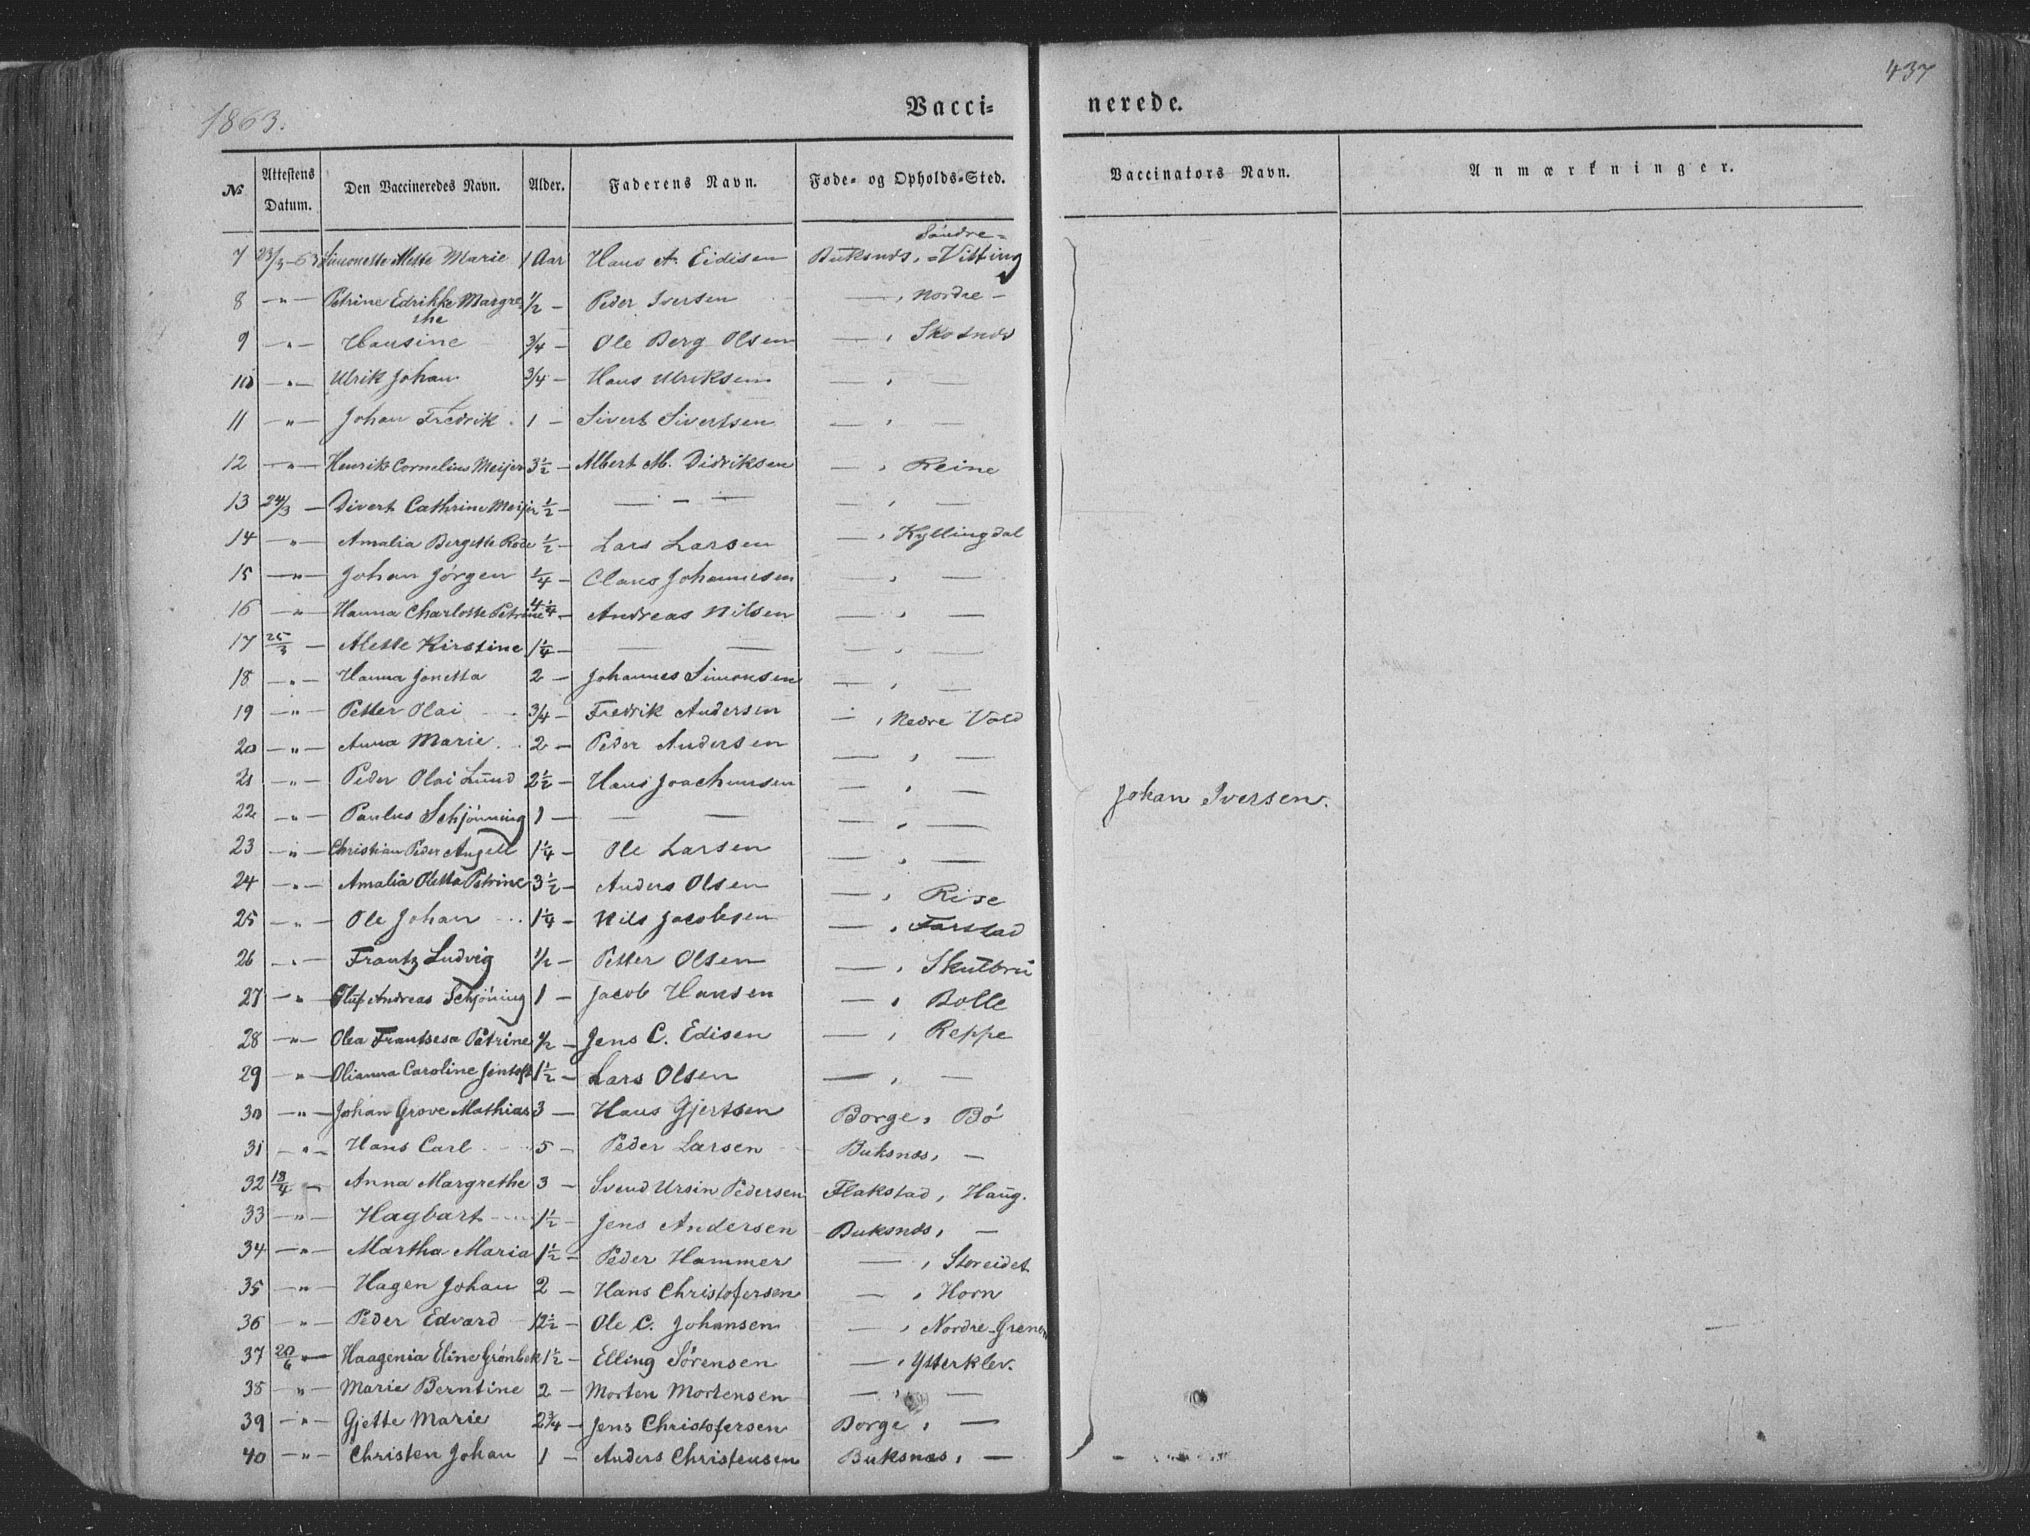 437
1863.
Vacci- nerede.
No. Attestens Datum. Den Vaccineredes Navn. Alder. Faderens Navn. Føde- og Opholds-Sted. Vaccinators Navn. Anmærkninger.
Søndre-
7 23/3-63 Simonette Mette Marie 1 Aar Hans A. Eidisen Buksnæs, - Vitting
8 -"- Petrine Edrikke Margre 1/2 - Peder Iversen — , Nordre -
the
9 -"- Hansine 3/4 - Ole Berg Olsen — , Skotnæs
10 -"- Ulrik Johan 3/4 - Hans Ulriksen — , —
11 -"- Johan Fredrik 1 - Sivert Sivertsen — , —
12 -"- Henrik Cornelius Meijer 3 1/2 - Albert M. Didriksen — , Reine
13 24/3 - Divert Cathrine Meijer 1/2 - — - — — , —
14 -"- Amalia Bergette Rode 1/2 - Lars Larsen — , Kyllingdal
15 -"- Johan Jørgen 1/4 - Claus Johannesen — , —
16 -"- Hanna Charlotte Petrine 4 1/4 - Andreas Nilsen — , —
17 25/3 - Mette Kirstine 1 1/4 - — — — , —
18 -"- Hanna Jonetta 2 - Johannes Simonsen — , —
19 -"- Petter Olai 3/4 - Fredrik Andersen — , Nedre Vold
20 -"- Anna Marie 2 - Peder Andersen — , —
21 -"- Peder Olai Lund 2 1/2 - Hans Joachimsen — , —
Johan Iversen.
22 -"- Paulus Schjønning 1 - — — — , —
23 -"- Christian Peder Angell 1 1/4 - Ole Larsen — , —
24 -"- Amalia Oletta Petrine 3 1/2 - Anders Olsen — , Rise
25 -"- Ole Johan 1 1/4 - Nils Jacobsen — , Farstad
26 -"- Frantz Ludvig 1/2 - Petter Olsen — , Skulbru
27 -"- Oluf Andreas Schjøning 1 - Jacob Hansen — , Bolle
28 -"- Olea Frantsesa Petrine 1/2 - Jens C. Edisen — , Reppe
29 -"- Olianna Caroline Jentoft 1 1/2 - Lars Olsen — , —
30 -"- Johan Grove Mathias 3 - Hans Gjertsen Borge, Bø
31 -"- Hans Carl 5 - Peder Larsen Buksnæs, —
32 18/4 - Anna Margrethe 3 - Svend Ursin Pedersen Flakstad, Haug.
33 -"- Hagbart 1 1/2 - Jens Andersen Buksnæs, —
34 -"- Martha Maria 1 1/2 - Peder Hammer — , Storeidet
35 -"- Hagen Johan 2 - Hans Christofersen — , Horn
36 -"- Peder Edvard 12 1/2 - Ole C. Johansen — , Nordre-Grenen
37 20/6 - Haagenia Eline Grønbek 1 1/2 - Elling Sørensen — , Ytterklev.
38 -"- Marie Berntine 2 - Morten Mortensen — , —
39 -"- Gjette Marie 2 3/4 - Jens Christofersen Borge, —
40 -"- Christen Johan 1 - Anders Christensen Buksnæs, —